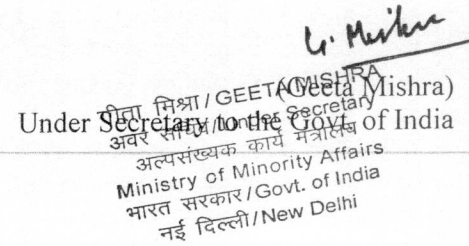 G. Mishra
(Geeta Mishra)
Under Secretary to the Govt. of India
गीता मिश्रा / GEETA MISHRA
अवर सचिव / Under Secretary
अल्पसंख्यक कार्य मंत्रालय
Ministry of Minority Affairs
भारत सरकार / Govt. of India
नई दिल्ली / New Delhi